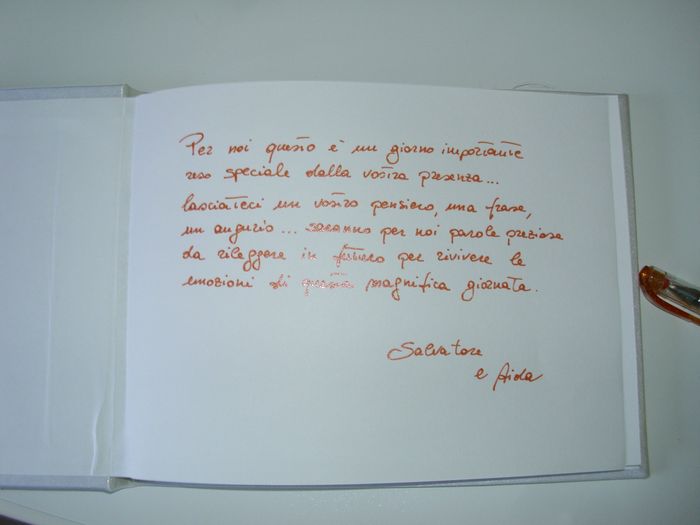 Per noi questo è un giorno importante
reso speciale dalla vostra presenza...
lasciateci un vostro pensiero, una frase,
un augurio... saranno per noi parole preziose
da rileggere in futuro per rivivere le
emozioni di questa magnifica giornata.
Salvatore
e Aida